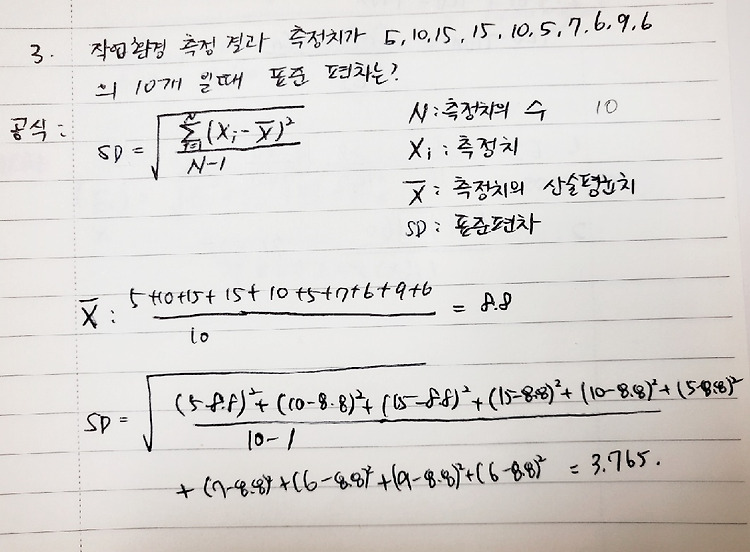 3. 작업환경 측정 결과 측정치가 5, 10, 15, 15, 10, 5, 7, 6, 9, 6
의 10개 일때 표준 편차는?
공식: SD = √(Σ_{i=1}^{N} (Xi - X̄)² / N-1)
N: 측정치의 수 10
Xi: 측정치
X̄: 측정치의 산술평균치
SD: 표준편차
X̄: 5+10+15+15+10+5+7+6+9+6 / 10 = 8.8
SD = √((5-8.8)²+(10-8.8)²+(15-8.8)²+(15-8.8)²+(10-8.8)²+(5-8.8)² / 10-1
+(7-8.8)²+(6-8.8)²+(9-8.8)²+(6-8.8)² = 3.765.